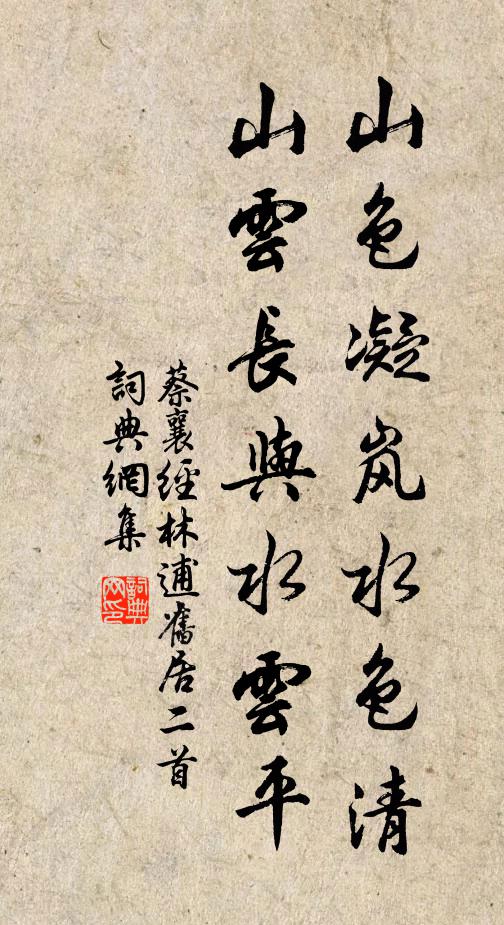 山色凝岚水色清
山雲長與水雲平
蔡襄經林逋舊居二首
詞典網集
詞典
网印